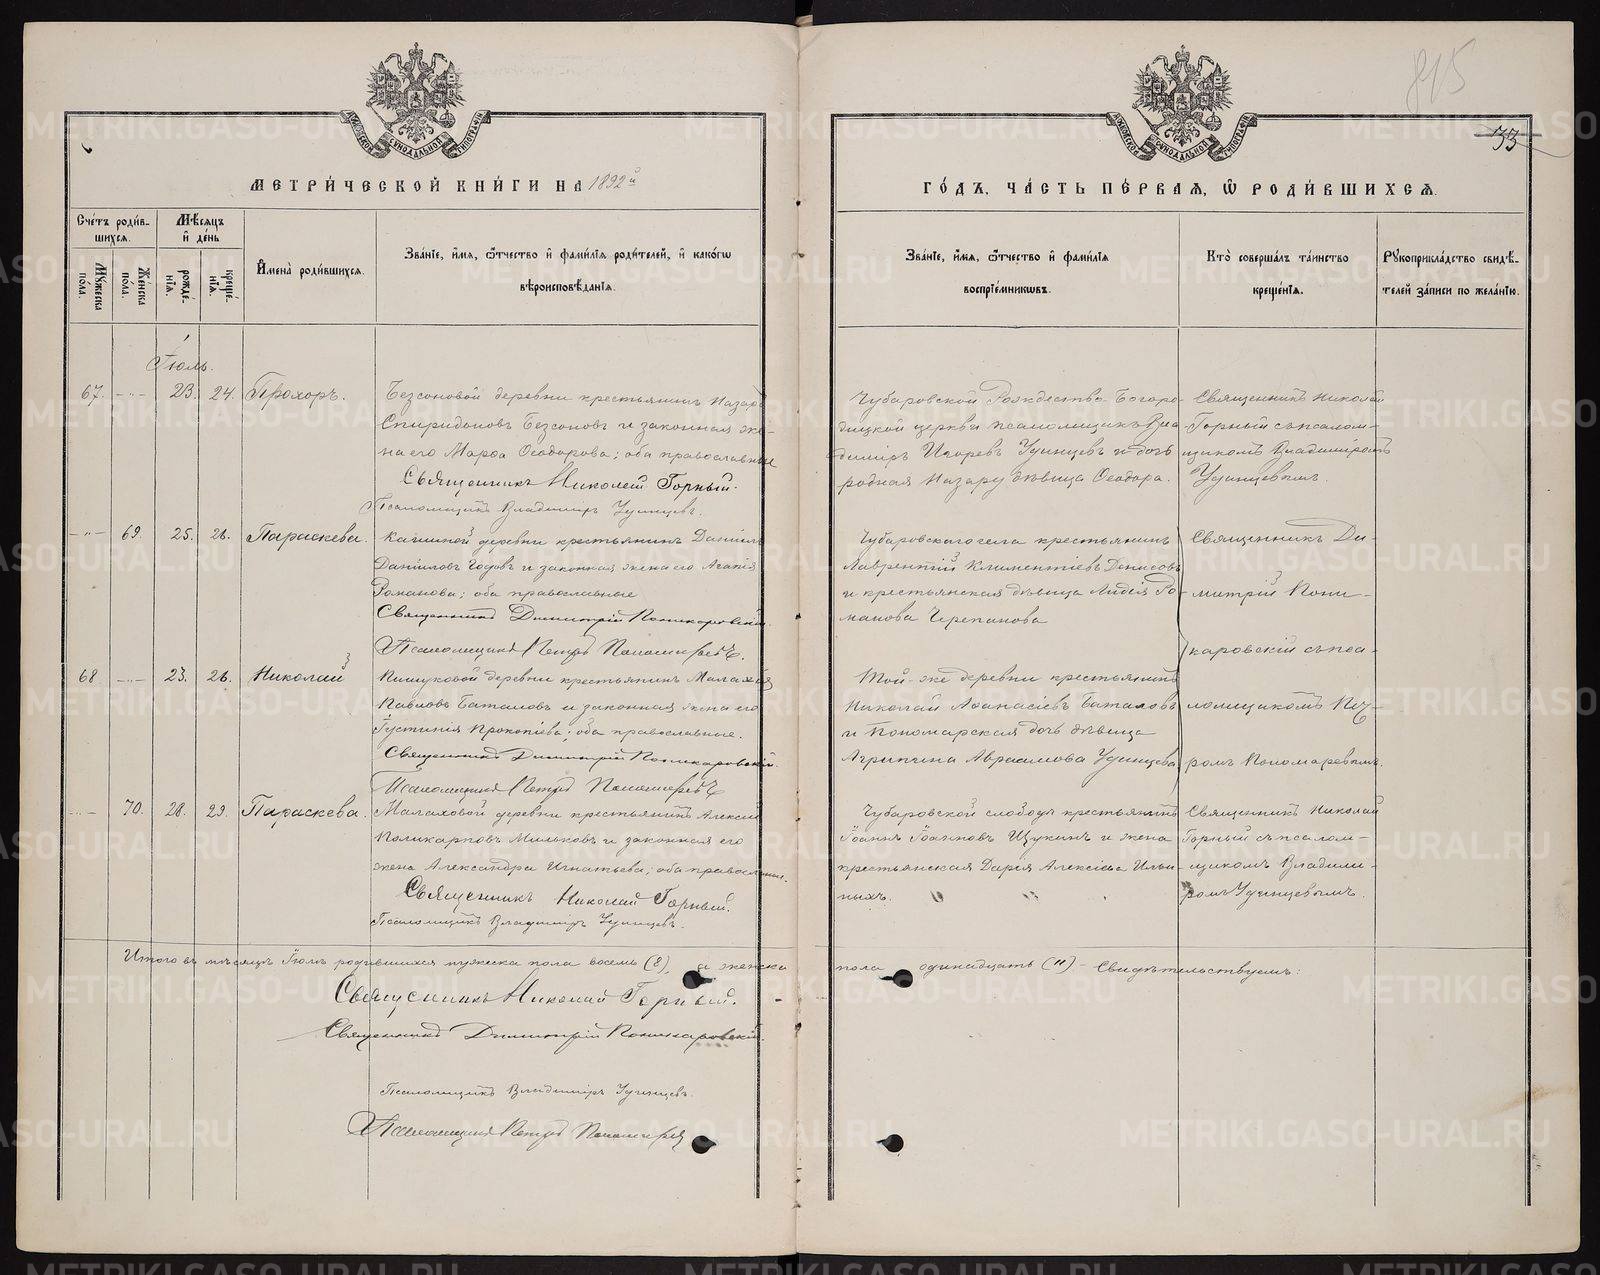 815
33
МЕТРИЧЕСКОЙ КНИГИ НА 1892й
ГОДЪ, ЧАСТЬ ПЕРВАЯ, Ѿ РОДИВШИХСЯ.
Счетъ родившихся.
Мужеска пола.
Женска пола.
Мѣсяцъ и день
рожденія.
крещенія.
Имена родившихся.
Званіе, имя, ѿтчество и фамилія родителей, и какогѡ
вѣроисповѣданія.
Званіе, имя, ѿтчество и фамилія
воспріемникѡвъ.
Кто совершалъ таинство
крещенія.
Рукоприкладство свидѣ-
телей записи по желанію.
Іюль.
67. 23. 24. Прохоръ.
Безсоновой деревни крестьянинъ Назаръ
Спиридоновъ Безсоновъ и законная же-
на его Марфа Ѳеодорова; оба православные
Священникъ Николай Горный.
Псаломщикъ Владиміръ Удинцевъ.
Чубаровской Рождества Богоро-
дицкой церкви псаломщикъ Вла-
диміръ Игоревъ Удинцевъ и дочь
родная Назару дѣвица Ѳеодора.
Священникъ Николай
Горный съ псалом-
щикомъ Владиміромъ
Удинцевымъ.
69. 25. 26. Параскева.
деревни крестьянинъ Даніилъ
Даніиловъ и законная жена его Агапія
Романова; оба православные
Священникъ Димитрій Поникаровскій.
Псаломщикъ Петръ Пономаревъ.
Чубаровскаго села крестьянинъ
Лаврентій Климентіевъ Денисовъ
и крестьянская дѣвица Лидія Ро-
манова Черепанова
Священникъ Ди-
митрій Пони-
каровскій съ пса-
ломщикомъ Пет-
ромъ Пономаревымъ.
68 23. 26. Николай
деревни крестьянинъ Малахій
Павловъ Баталовъ и законная жена его
Іустинія Прокопіева; оба православные.
Священникъ Димитрій Поникаровскій.
Псаломщикъ Петръ Пономаревъ
Той-же деревни крестьянинъ
Николай Аѳанасіевъ Баталовъ
и Пономарская дочь дѣвица
Агрипина Авраамова Удинцева
70. 28. 29. Параскева.
Малаховой деревни крестьянинъ Алексій
Поликарповъ Мильковъ и законная его
жена Александра Игнатьева; оба православные.
Священникъ Николай Горный.
Псаломщикъ Владиміръ Удинцевъ.
Чубаровской слободы крестьянинъ
Іоаннъ Іоанновъ Щукинъ и жена
крестьянская Дарія Алексіева Ильи-
ныхъ.
Священникъ Николай
Горный съ псалом-
щикомъ Владими-
ромъ Удинцевымъ.
Итого въ мѣсяцѣ Іюлѣ родившихся мужеска пола восемь (8), а женска
пола одинадцать (11) - Свидѣтельствуемъ:
Священникъ Николай Горный.
Священникъ Димитрій Поникаровскій.
Псаломщикъ Владиміръ Удинцевъ.
Псаломщикъ Петръ Пономаревъ
METRIKI.GASO-URAL.RU